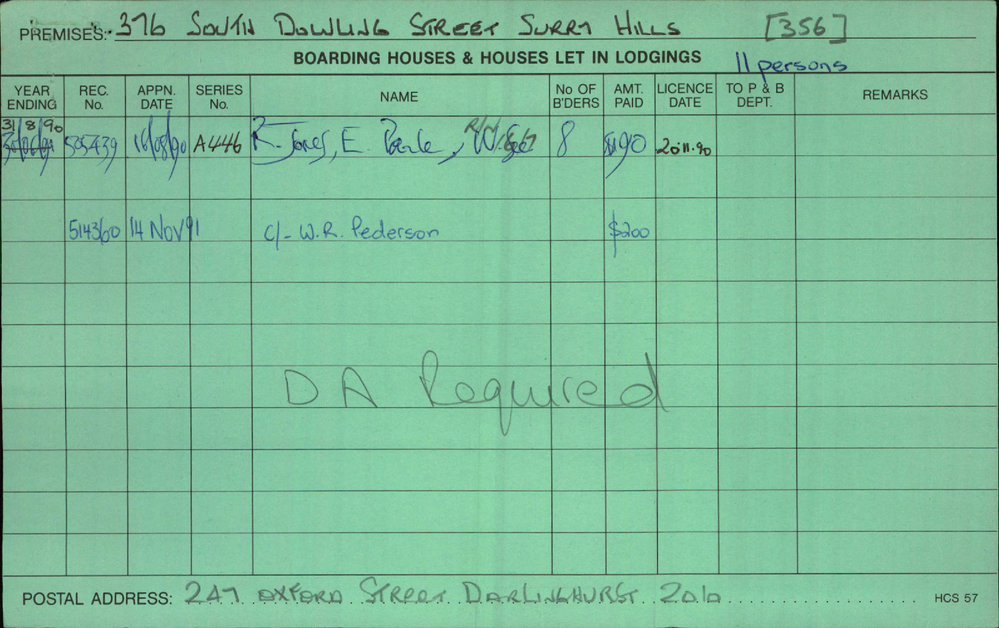 PREMISES: 376 SOUTH DOWLING STREET SURRY HILLS [356]
BOARDING HOUSES & HOUSES LET IN LODGINGS 11 persons
YEAR ENDING REC. No. APPN. DATE SERIES No. NAME No OF B'DERS AMT. PAID LICENCE DATE TO P & B DEPT. REMARKS
31/8/90
505439 16/08/90 A446 R. Jones, E. 8 $190 20.11.90
514360 14 Nov 91 c/- W.R. Pederson $200
DA Required
POSTAL ADDRESS: 247 OXFORD STREET DARLINGHURST 2010 HCS 57